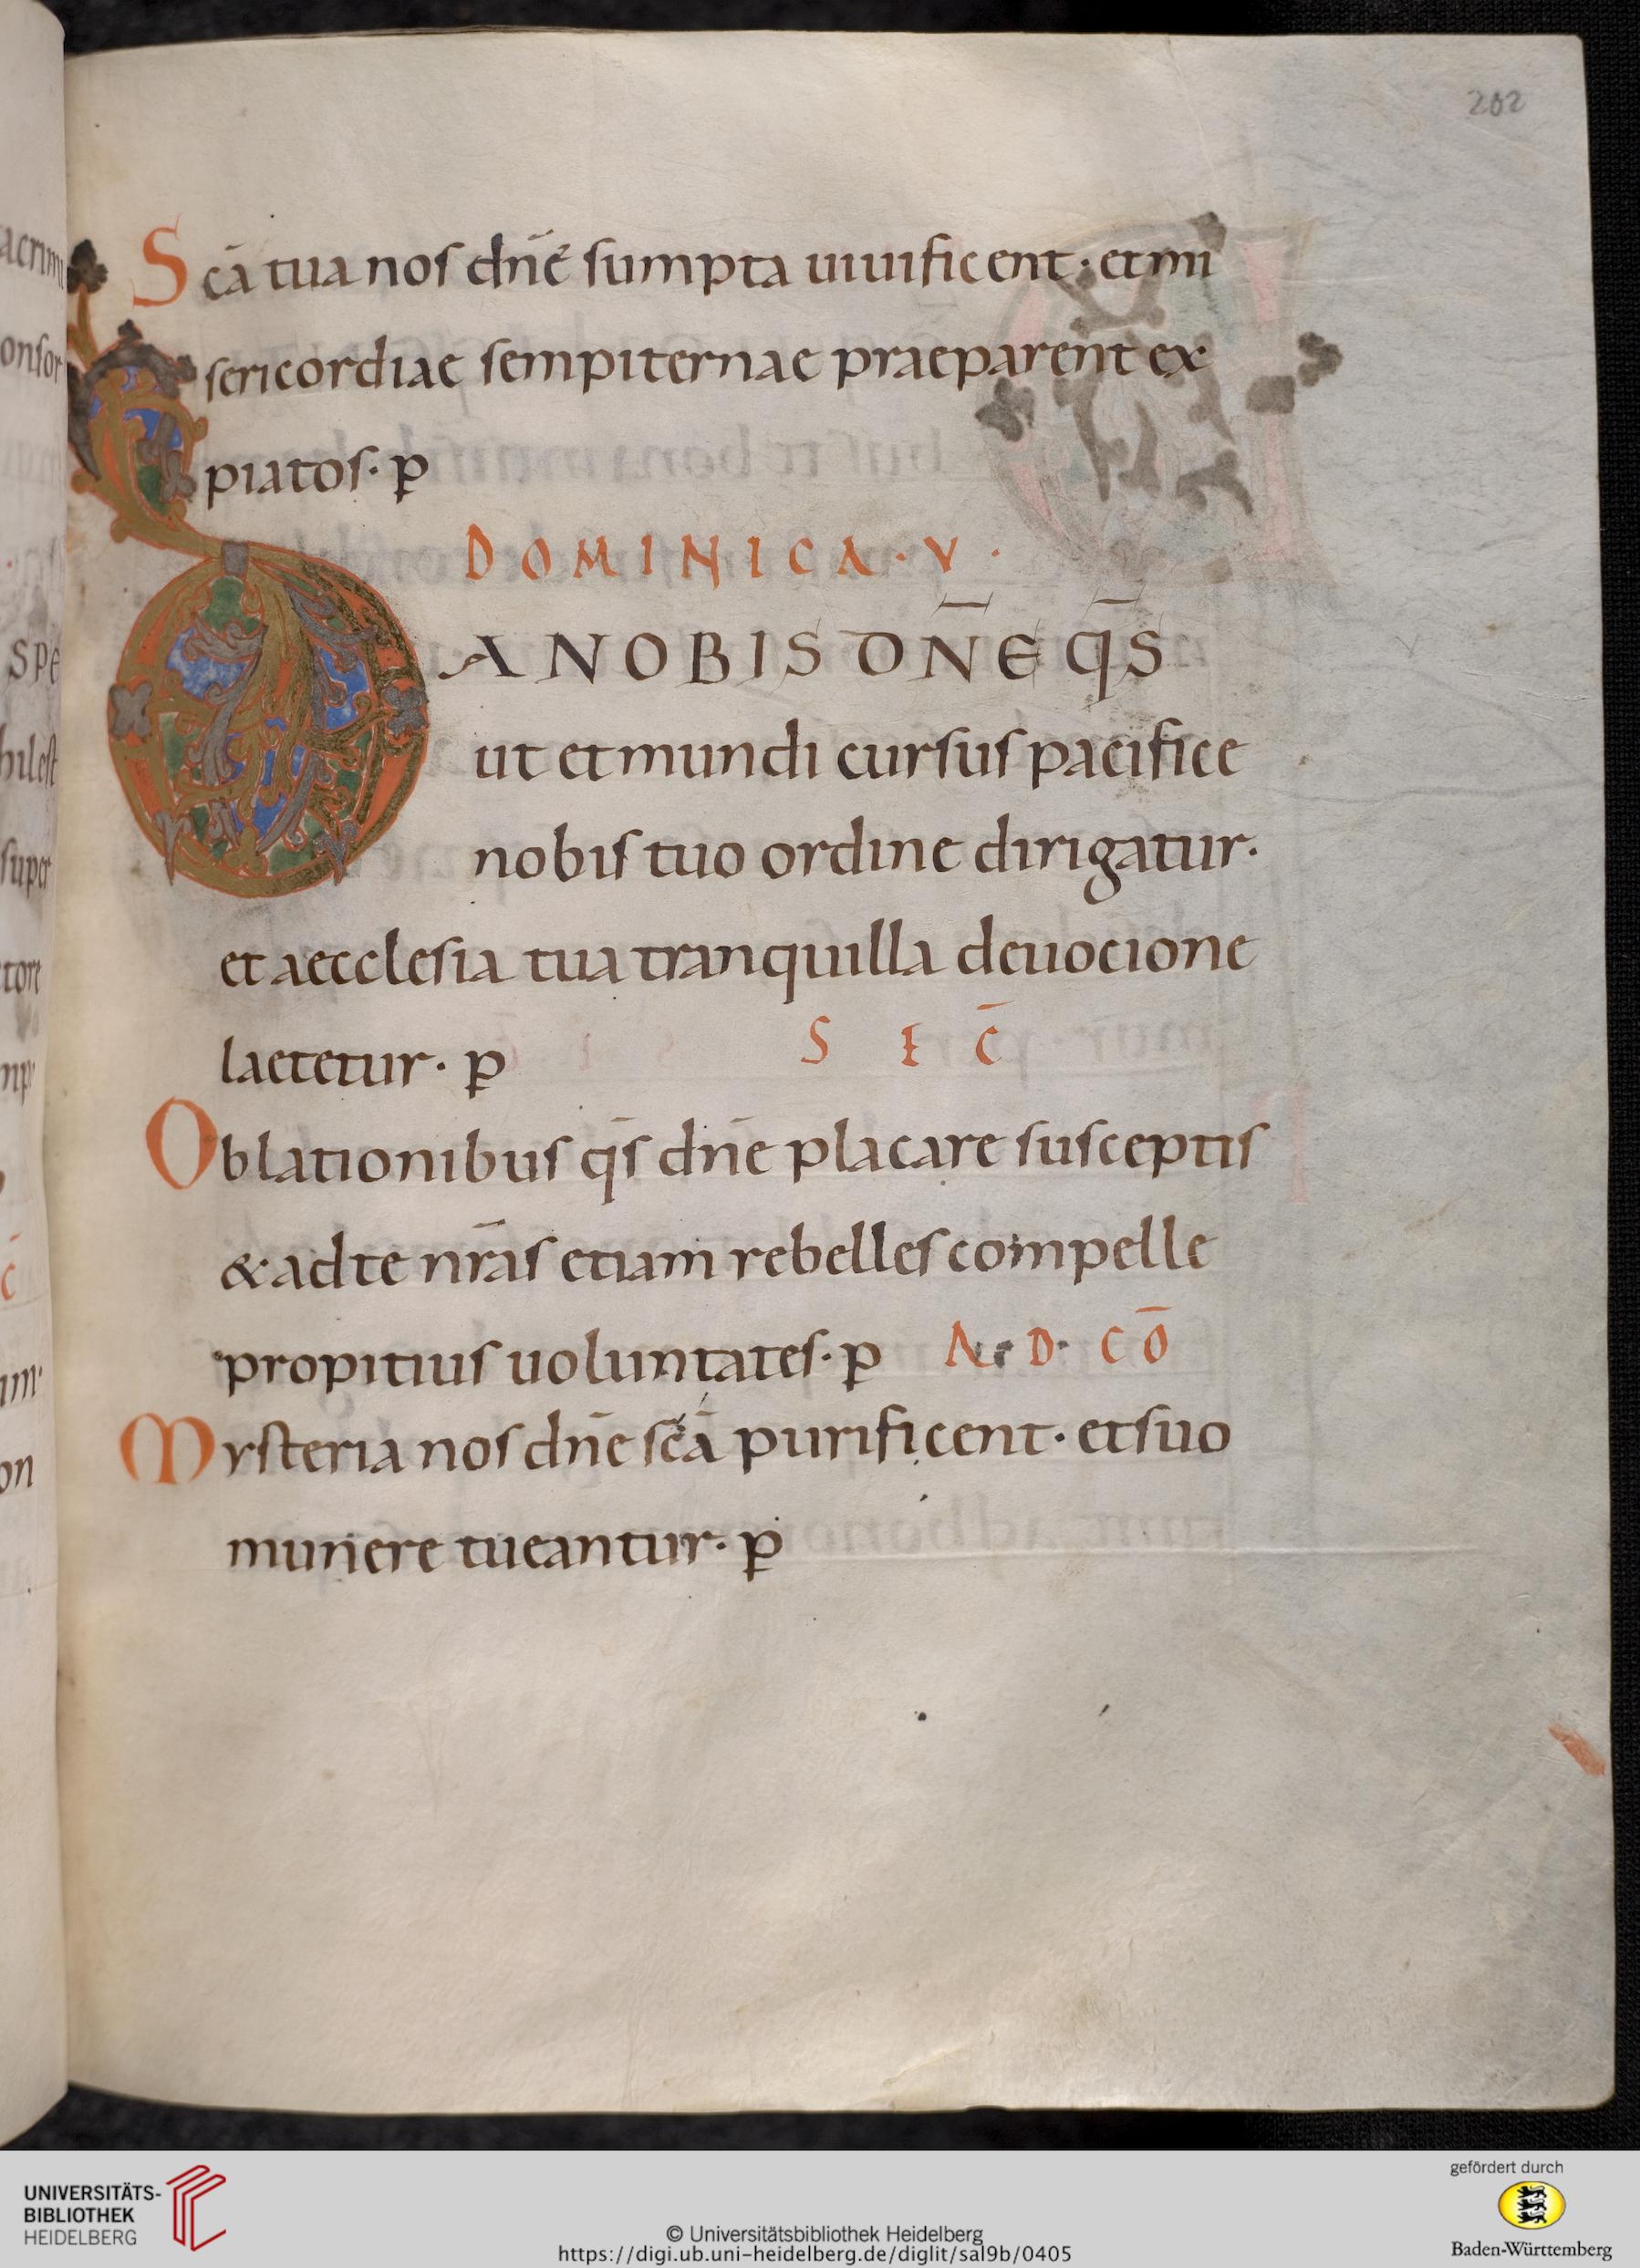 202
Scā tua nos dn̄e sumpta uiuificent · et mi
sericordiae sempiternae praeparent ex
piatos · p
DOMINICA · V ·
DA NOBIS DN̄E Q̄S
ut et mundi cursus pacifice
nobis tuo ordine dirigatur ·
et aecclesia tua tranquilla deuocione
laetetur · p SEC̄
Oblationibus qs̄ dn̄e placare susceptis
& ad te nr̄as etiam rebelles compelle
propitius uoluntates · p AD CŌ
Mysteria nos dn̄e sc̄a purificent · et suo
munere tueantur · p
UNIVERSITÄTS-
BIBLIOTHEK
HEIDELBERG
© Universitätsbibliothek Heidelberg
https://digi.ub.uni-heidelberg.de/diglit/sal9b/0405
gefördert durch
Baden-Württemberg